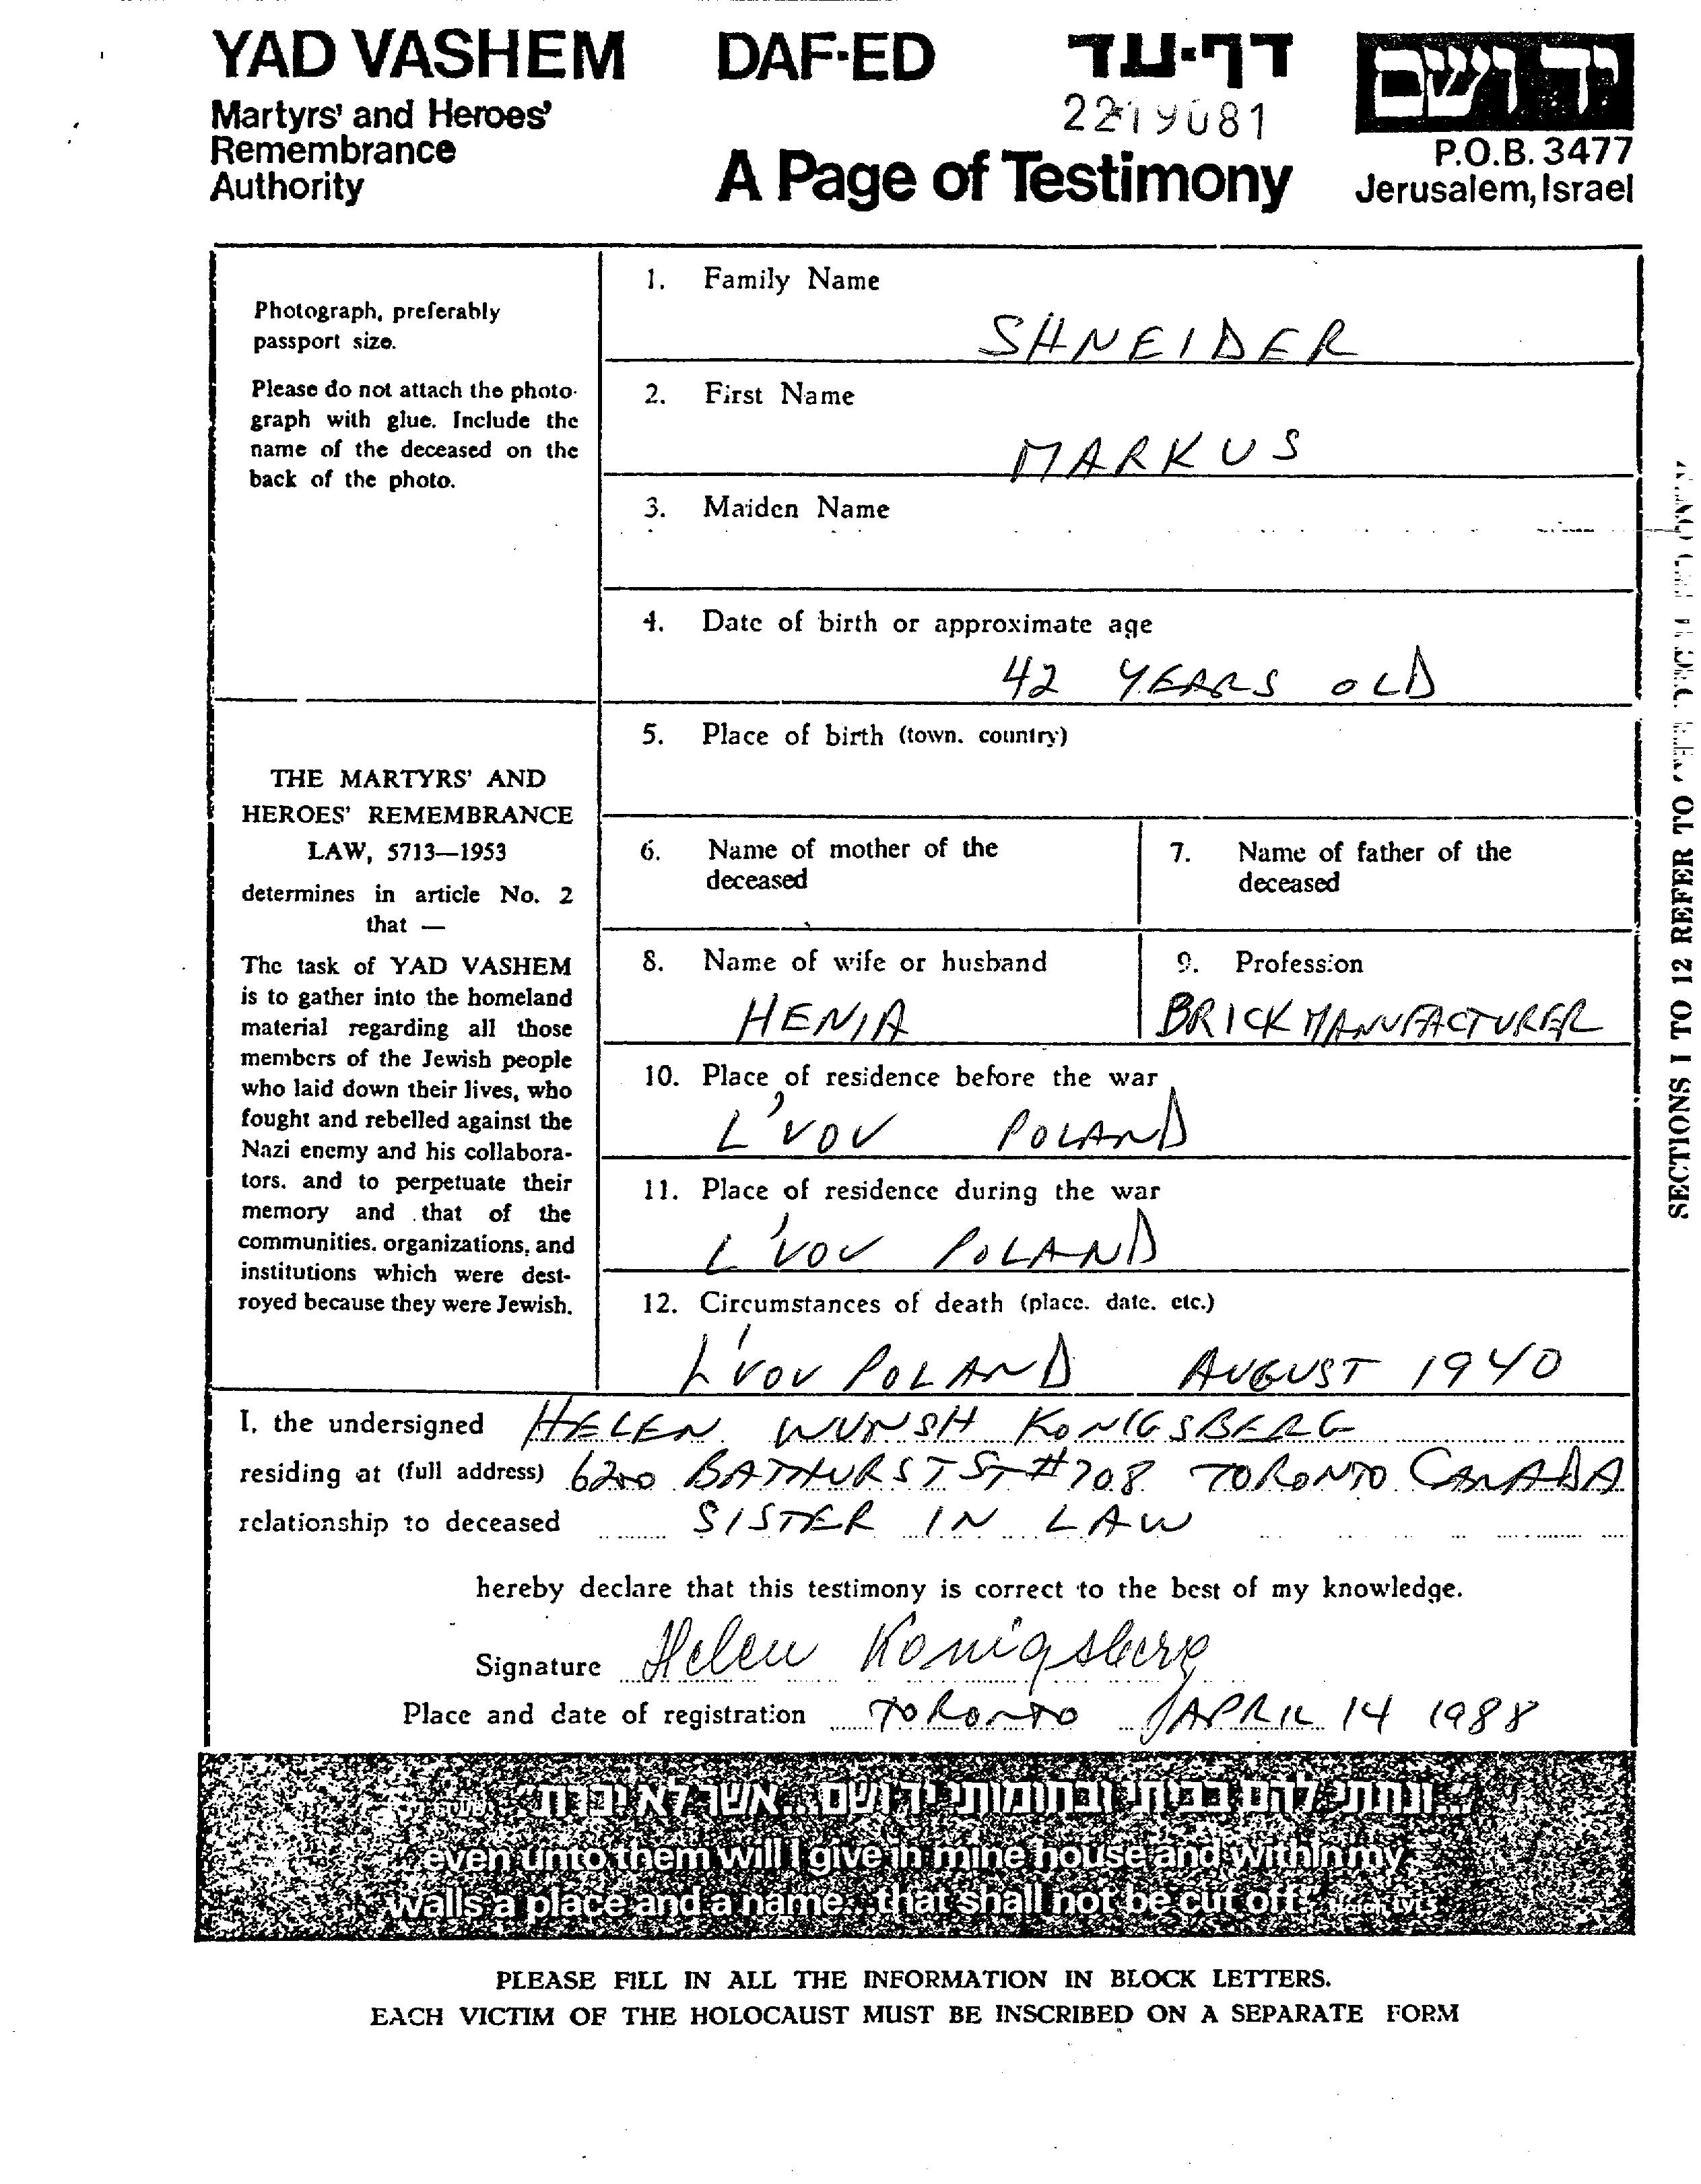 YAD VASHEM
Martyrs' and Heroes'
Remembrance
Authority
DAF-ED
דף-עד
2219081
A Page of Testimony
יד ושם
P.O.B. 3477
Jerusalem, Israel
Photograph, preferably
passport size.
Please do not attach the photo-
graph with glue. Include the
name of the deceased on the
back of the photo.
THE MARTYRS' AND
HEROES' REMEMBRANCE
LAW, 5713—1953
determines in article No. 2
that —
The task of YAD VASHEM
is to gather into the homeland
material regarding all those
members of the Jewish people
who laid down their lives, who
fought and rebelled against the
Nazi enemy and his collabora-
tors, and to perpetuate their
memory and that of the
communities, organizations, and
institutions which were dest-
royed because they were Jewish.
1. Family Name
SHNEIDER
2. First Name
MARKUS
3. Maiden Name
4. Date of birth or approximate age
42 YEARS OLD
5. Place of birth (town, country)
6. Name of mother of the
deceased
7. Name of father of the
deceased
8. Name of wife or husband
HENIA
9. Profession
BRICK MANUFACTURER
10. Place of residence before the war
L'VOV POLAND
11. Place of residence during the war
L'VOV POLAND
12. Circumstances of death (place, date, etc.)
L'VOV POLAND AUGUST 1940
I, the undersigned HELEN WUNSH KONIGSBERG
residing at (full address) 6200 BATHURST ST #708 TORONTO CANADA
relationship to deceased SISTER IN LAW
hereby declare that this testimony is correct to the best of my knowledge.
Signature Helen Konigsberg
Place and date of registration TORONTO APRIL 14 1988
"...ונתתי להם בביתי ובחומותי יד ושם...אשר לא יכרת"
"...even unto them will I give in mine house and within my
walls a place and a name...that shall not be cut off." Isaiah LVI,5
PLEASE FILL IN ALL THE INFORMATION IN BLOCK LETTERS.
EACH VICTIM OF THE HOLOCAUST MUST BE INSCRIBED ON A SEPARATE FORM
SECTIONS 1 TO 12 REFER TO